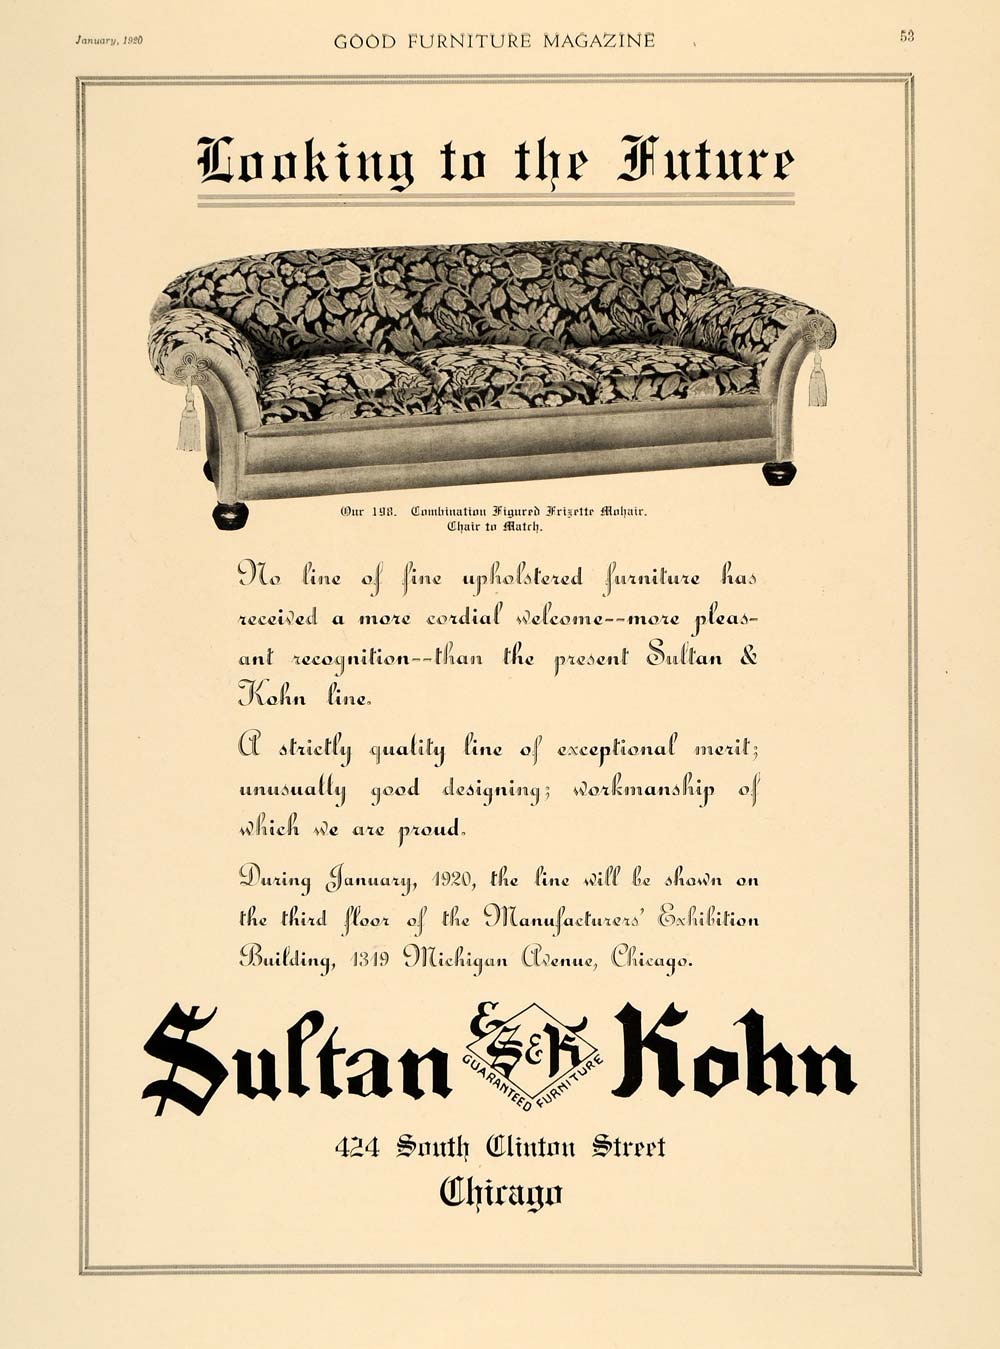 January, 1920
GOOD FURNITURE MAGAZINE
53
Looking to the Future
Our 198. Combination Figured Frizette Mohair.
Chair to Match.
No line of fine upholstered furniture has
received a more cordial welcome--more pleas-
ant recognition--than the present Sultan &
Kohn line.
A strictly quality line of exceptional merit;
unusually good designing; workmanship of
which we are proud.
During January, 1920, the line will be shown on
the third floor of the Manufacturers' Exhibition
Building, 1319 Michigan Avenue, Chicago.
Sultan & Kohn
S&K
GUARANTEED FURNITURE
424 South Clinton Street
Chicago